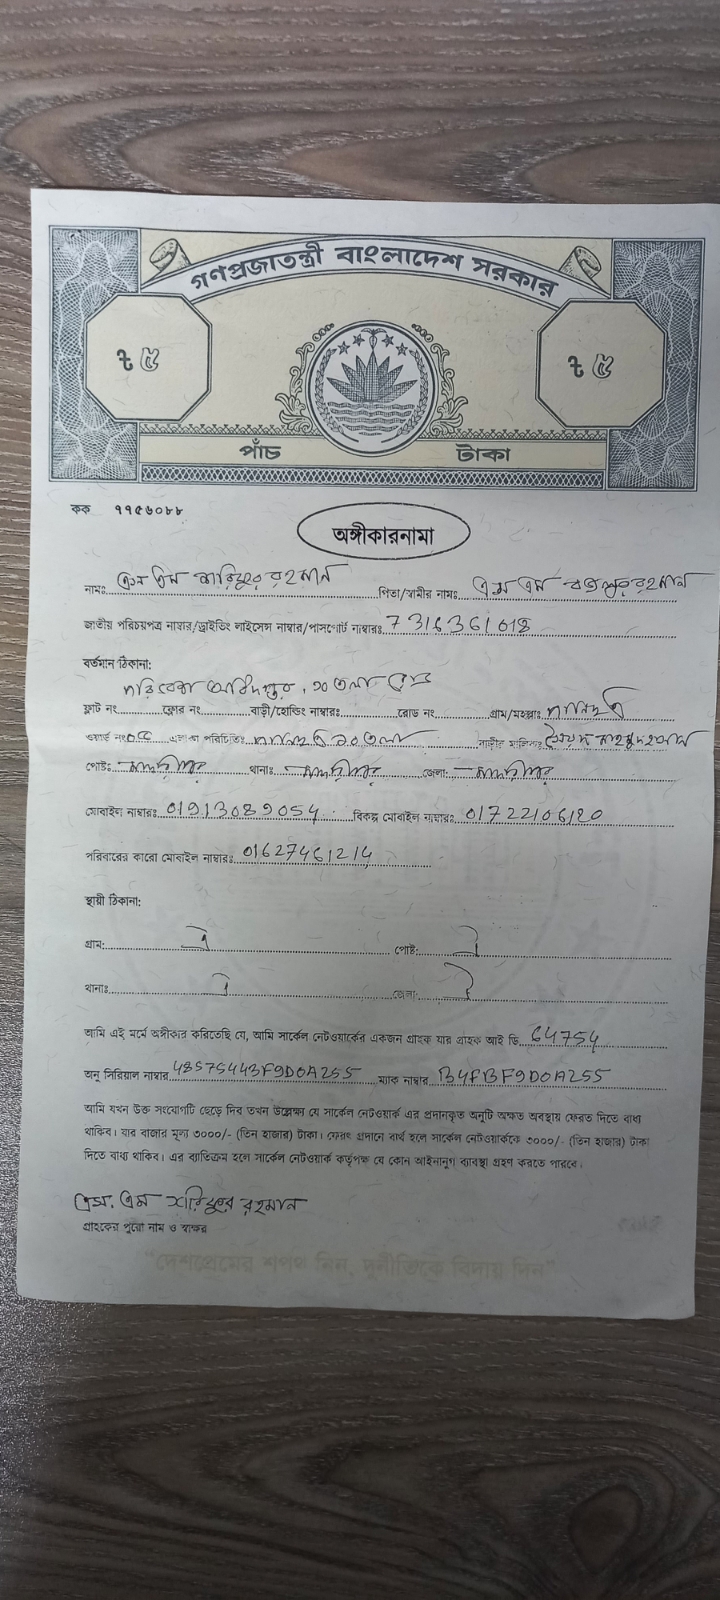 গণপ্রজাতন্ত্রী বাংলাদেশ সরকার
৳ ৫ ৳ ৫
পাঁচ টাকা
কক ৭৭৫৬০৮৮
অঙ্গীকারনামা
নামঃ এস এম শরিফুর রহমান পিতা/স্বামীর নামঃ এস এম বজলুর রহমান
জাতীয় পরিচয়পত্র নাম্বার/ড্রাইভিং লাইসেন্স নাম্বার/পাসপোর্ট নাম্বারঃ 7316361018
বর্তমান ঠিকানা:
১০ তলা
ফ্লাট নং ফ্লোর নং বাড়ী/হোল্ডিং নাম্বারঃ রোড নং গ্রাম/মহল্লাঃ
ওয়ার্ড নংঃ ০৫ এলাকা পরিচিতিঃ ১০ তলা বাড়ীর মালিকঃ সৈয়দ
পোষ্টঃ থানাঃ জেলা:
মোবাইল নাম্বারঃ 01913089054 বিকল্প মোবাইল নাম্বারঃ 01722106120
পরিবারের কারো মোবাইল নাম্বারঃ 01627461214
স্থায়ী ঠিকানা:
গ্রাম: ঐ পোষ্ট: ঐ
থানাঃ ঐ জেলা: ঐ
আমি এই মর্মে অঙ্গীকার করিতেছি যে, আমি সার্কেল নেটওয়ার্কের একজন গ্রাহক যার গ্রাহক আই ডি 64754
অনু সিরিয়াল নাম্বার 48575443F9D0A255 ম্যাক নাম্বার B4FBF9D0A255
আমি যখন উক্ত সংযোগটি ছেড়ে দিব তখন উল্লেক্ষ্য যে সার্কেল নেটওয়ার্ক এর প্রদানকৃত অনুটি অক্ষত অবস্থায় ফেরত দিতে বাধ্য
থাকিব। যার বাজার মূল্য ৩০০০/- (তিন হাজার) টাকা। ফেরৎ প্রদানে ব্যর্থ হলে সার্কেল নেটওয়ার্ককে ৩০০০/- (তিন হাজার) টাকা
দিতে বাধ্য থাকিব। এর ব্যতিক্রম হলে সার্কেল নেটওয়ার্ক কর্তৃপক্ষ যে কোন আইনানুগ ব্যবস্থা গ্রহণ করতে পারবে।
এস. এম শরিফুর রহমান
গ্রাহকের পুরো নাম ও স্বাক্ষর
"দেশপ্রেমের শপথ নিন, দুর্নীতিকে বিদায় দিন"